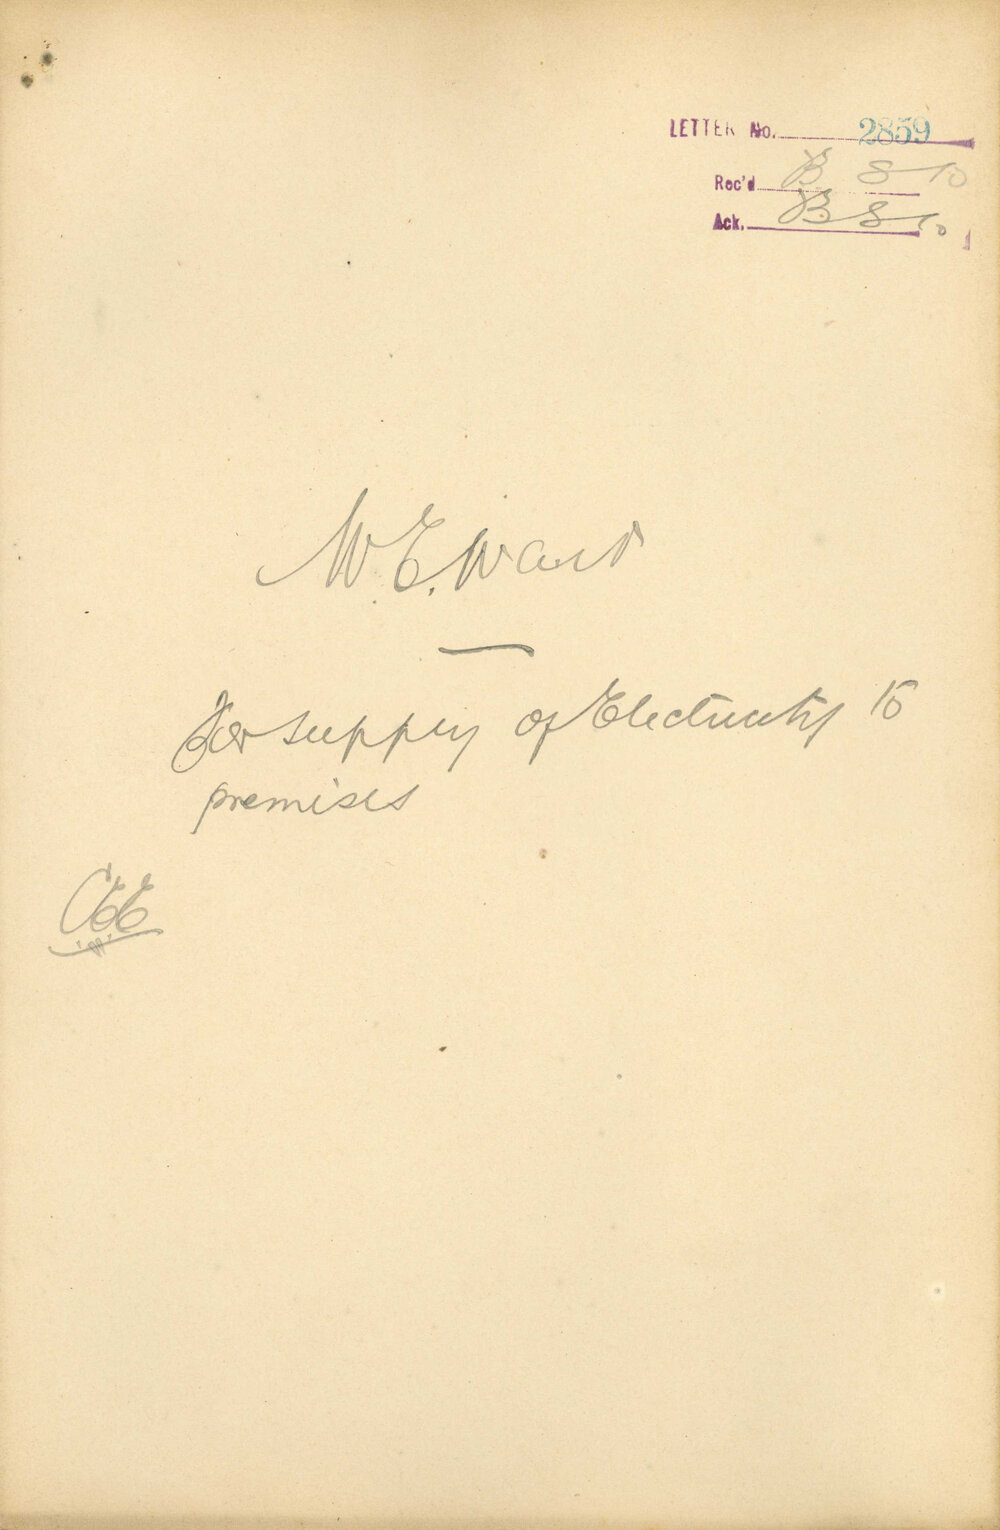 LETTER No. 2859
Rec'd 13 8 10
Ack. 13 8 10
W. E. Ward
For supply of Electricity to
premises
CEE